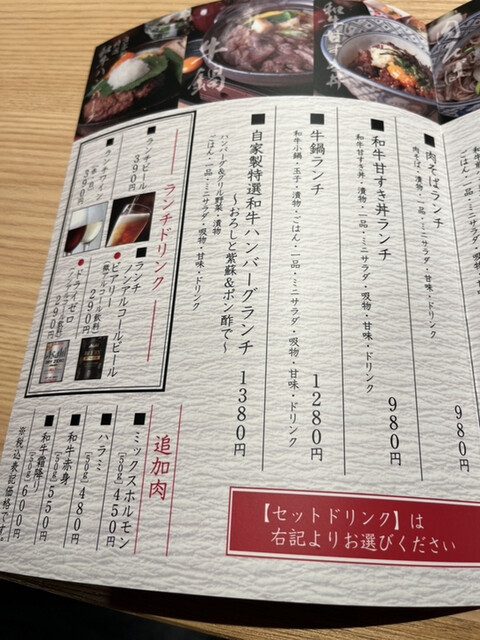 肉そばランチ
肉そば・漬物・一品・ミニサラダ・吸物・甘味・ドリンク
980円
■和牛甘すき丼ランチ
和牛甘すき丼・漬物・一品・ミニサラダ・吸物・甘味・ドリンク
980円
■牛鍋ランチ
和牛小鍋・玉子・漬物・ごはん・一品・ミニサラダ・吸物・甘味・ドリンク
1280円
■自家製特選和牛ハンバーグランチ
〜おろしと紫蘇&ポン酢で〜
ハンバーグ&グリル野菜・漬物
ごはん・一品・ミニサラダ・吸物・甘味・ドリンク
1380円
牛鍋
ランチドリンク
■ランチビール
390円
■ランチワイン
390円
■ランチ
ノンアルコールビール
●ビアリー
(微アルコール飲料)
290円
●ドライゼロ
(ノンアルコール)
290円
追加肉
■ミックスホルモン
(50g) 450円
■ハラミ
(50g) 480円
■和牛赤身
(50g) 550円
■和牛霜降り
(50g) 600円
※税込表記価格です。
【セットドリンク】は
右記よりお選びください